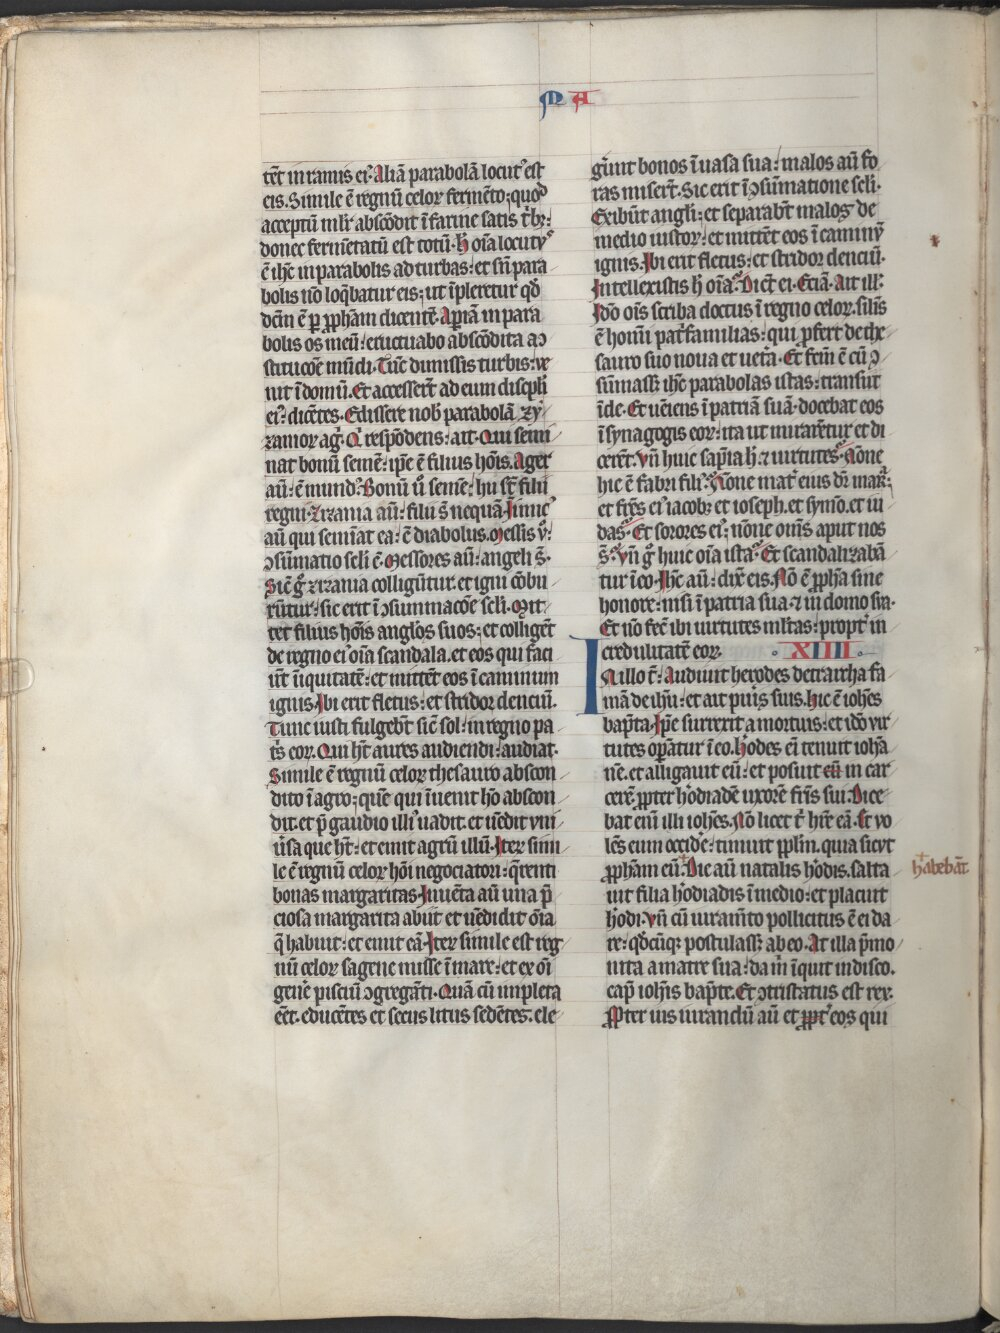 M A
tēt in ramis eiꝰ. Aliā parabolā locutꝰ est
eis. Simile ē regnū celoꝝ fermēto: quod
acceptū mlr̄ abscōdit ī farine satis tͥbꝫ:
donec fermētatū est totū. h̄ oīa locutꝰ
ē ih̄c in parabolis ad turbas: et sn̄ para
bolis nō loq̄batur eis: ut īpleretur qd̄
dcm̄ ē ꝑ ꝓph̄am dicentē. Apīā in para
bolis os meū: eructuabo abscōdita a ↄ
stitucōe mūdi. Tūc dimissis turbis: ve
nit ī domū. Et accessert̄ ad eum discipl̄i
eiꝰ: dicētes. Edissere nob̄ parabolā zy
zanioꝝ agͥ. Qͥ respōdens: ait. Qui semi
nat bonū semē: ip̄e ē filius hoīs. Ager
aū: ē mundꝰ. Bonū ū semē: hii st̄ filii
regni. Zizania aū: filii s̄ nequā. Inimicꝰ
aū qui semīat ea: ē diabolus. Messis v̊:
ↄsūmatio scl̄i ē. Messores aū: angeli s̄.
Sic̄ gͦ zizania colligūtur et igni cōbu
rūtur: sic erit ī ↄsummacōe scl̄i. Mit
tet filius hoīs angl̄os suos: et colligēt
de regno eiꝰ oīa scandala. et eos qui faci
ūt īiquitatē: et mittēt eos ī caminum
ignis. Ibi erit fletus: et stridor denciū.
Tunc iusti fulgebūt sic̄ sol: in regno pa
tͥs eoꝝ. Qui hʳt aures audiendi: audiat.
Simile ē regnū celoꝝ thesauro abscon
dito ī agro: quē qui īuenit hō abscon
dit. et p̄ gaudio illiꝰ uadit. et uēdit uni
u̇sa que hʳt: et emit agrū illū. Iteꝝ simi
le ē regnū celoꝝ hoī negociatori: q̄renti
bonas margaritas. Inuēta aū una p̄
ciosa margarita abiit et uēdidit oīa
q̄ habuit: et emit eā. Iteꝝ simile est reg
nū celoꝝ sagene misse ī mare: et ex oī
genē pisciū ↄgregāti. Quā cū impleta
eēt. educētes et secus litus sedētes. ele
gūnt bonos ī uasa sua: malos aū fo
ras misert̄. Sic erit ī ↄsūmatione scl̄i.
Exibūt angl̄i: et separabt̄ malos de
medio iustoꝝ: et mittēt eos ī caminū
ignis. Ibi erit fletus: et stridor denciū.
Intellexistis h̄ oīa. Dicūt ei. Eciā. Ait ill̄:
Idō oīs scriba doctus ī regno celoꝝ. sil̄is
ē homī patͥfamilias: qui ꝓfert de the
sauro suo noua et uetͣa. Et fcm̄ ē cū ↄ
sūmass̄ ih̄c parabolas istas: transiit
īde. Et uēiens ī patriā suā. docebat eos
ī synagogis eoꝝ: ita ut mirarētur et di
cerēt. Vn̄ huic sapīa h̄ ⁊ uirtutes. Nōne
hic ē fabri filiꝰ. Nōne matͬ eius dr̄ maͥa:
et fr̄es eiꝰ iacobꝫ et ioseph. et symō. et iu
das. Et sorores eiꝰ: nōne oms̄ aput nos
s̄. Vn̄ gͦ huic oīa ista. Et scandalizabā
tur ī eo. Ih̄c aū: dix̄ eis. Nō ē ꝓph̄a sine
honore: nisi ī patria sua ⁊ in domo sua.
Et nō fec̄ ibi uirtutes ml̄tas: ꝓptͬ in
credulitatē eoꝝ. XIIII.
In illo t̄: Audiuit herodes detrarcha fa
mā de ih̄u: et ait pu̇is suis. hic ē ioh̄es
bap̄ta. Ip̄e surrexit a mortuis: et idō uir
tutes oꝑātur ī eo. h̊odes eī tenuit iohā
nē. et alligauit eū: et posuit eū in car
cerē ꝓpter h̊odiadē uxorē fr̄is sui. Dice
bat enī illi ioh̄es. Nō licet tͥ hr̄e eā. Et vo
lēs eum occidē: timuit ppl̄m. quia sicut
ꝓph̄am eū. Die aū natalis h̊odis. salta
habebāt
uit filia h̊odiadis ī medio: et placuit
h̊odi. Vn̄ cū iuramto pollicitus ē ei da
re: qd̄cūqꝫ postulass̄ ab eo. At illa p̄mo
nita a matre sua: da m̄ īquit in disco.
cap̄ ioh̄is bap̄te. Et ↄtristatus est rex.
Ꝓpter ius iurandū aū et ꝓptͬ eos qui